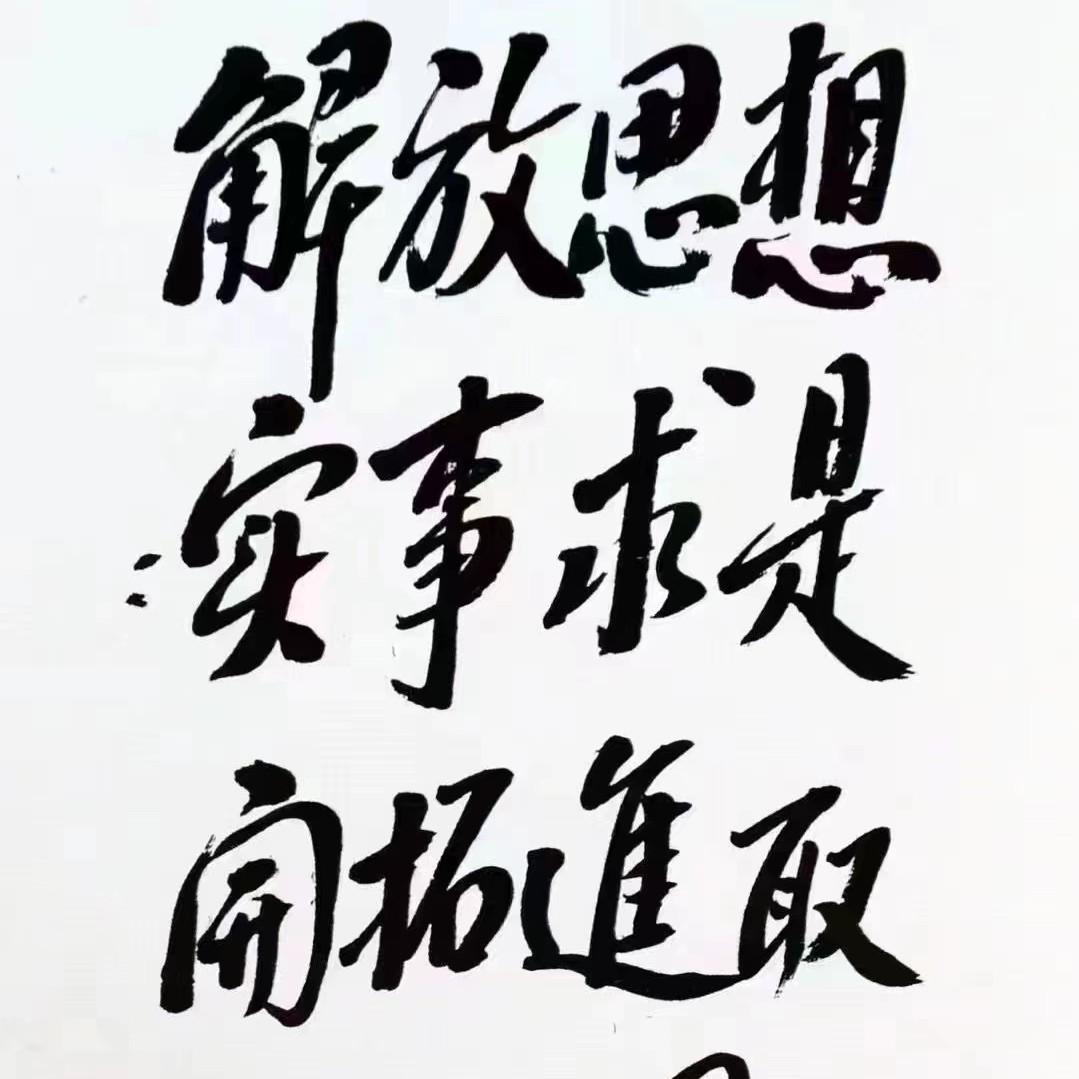 解放思想
实事求是
開拓進取